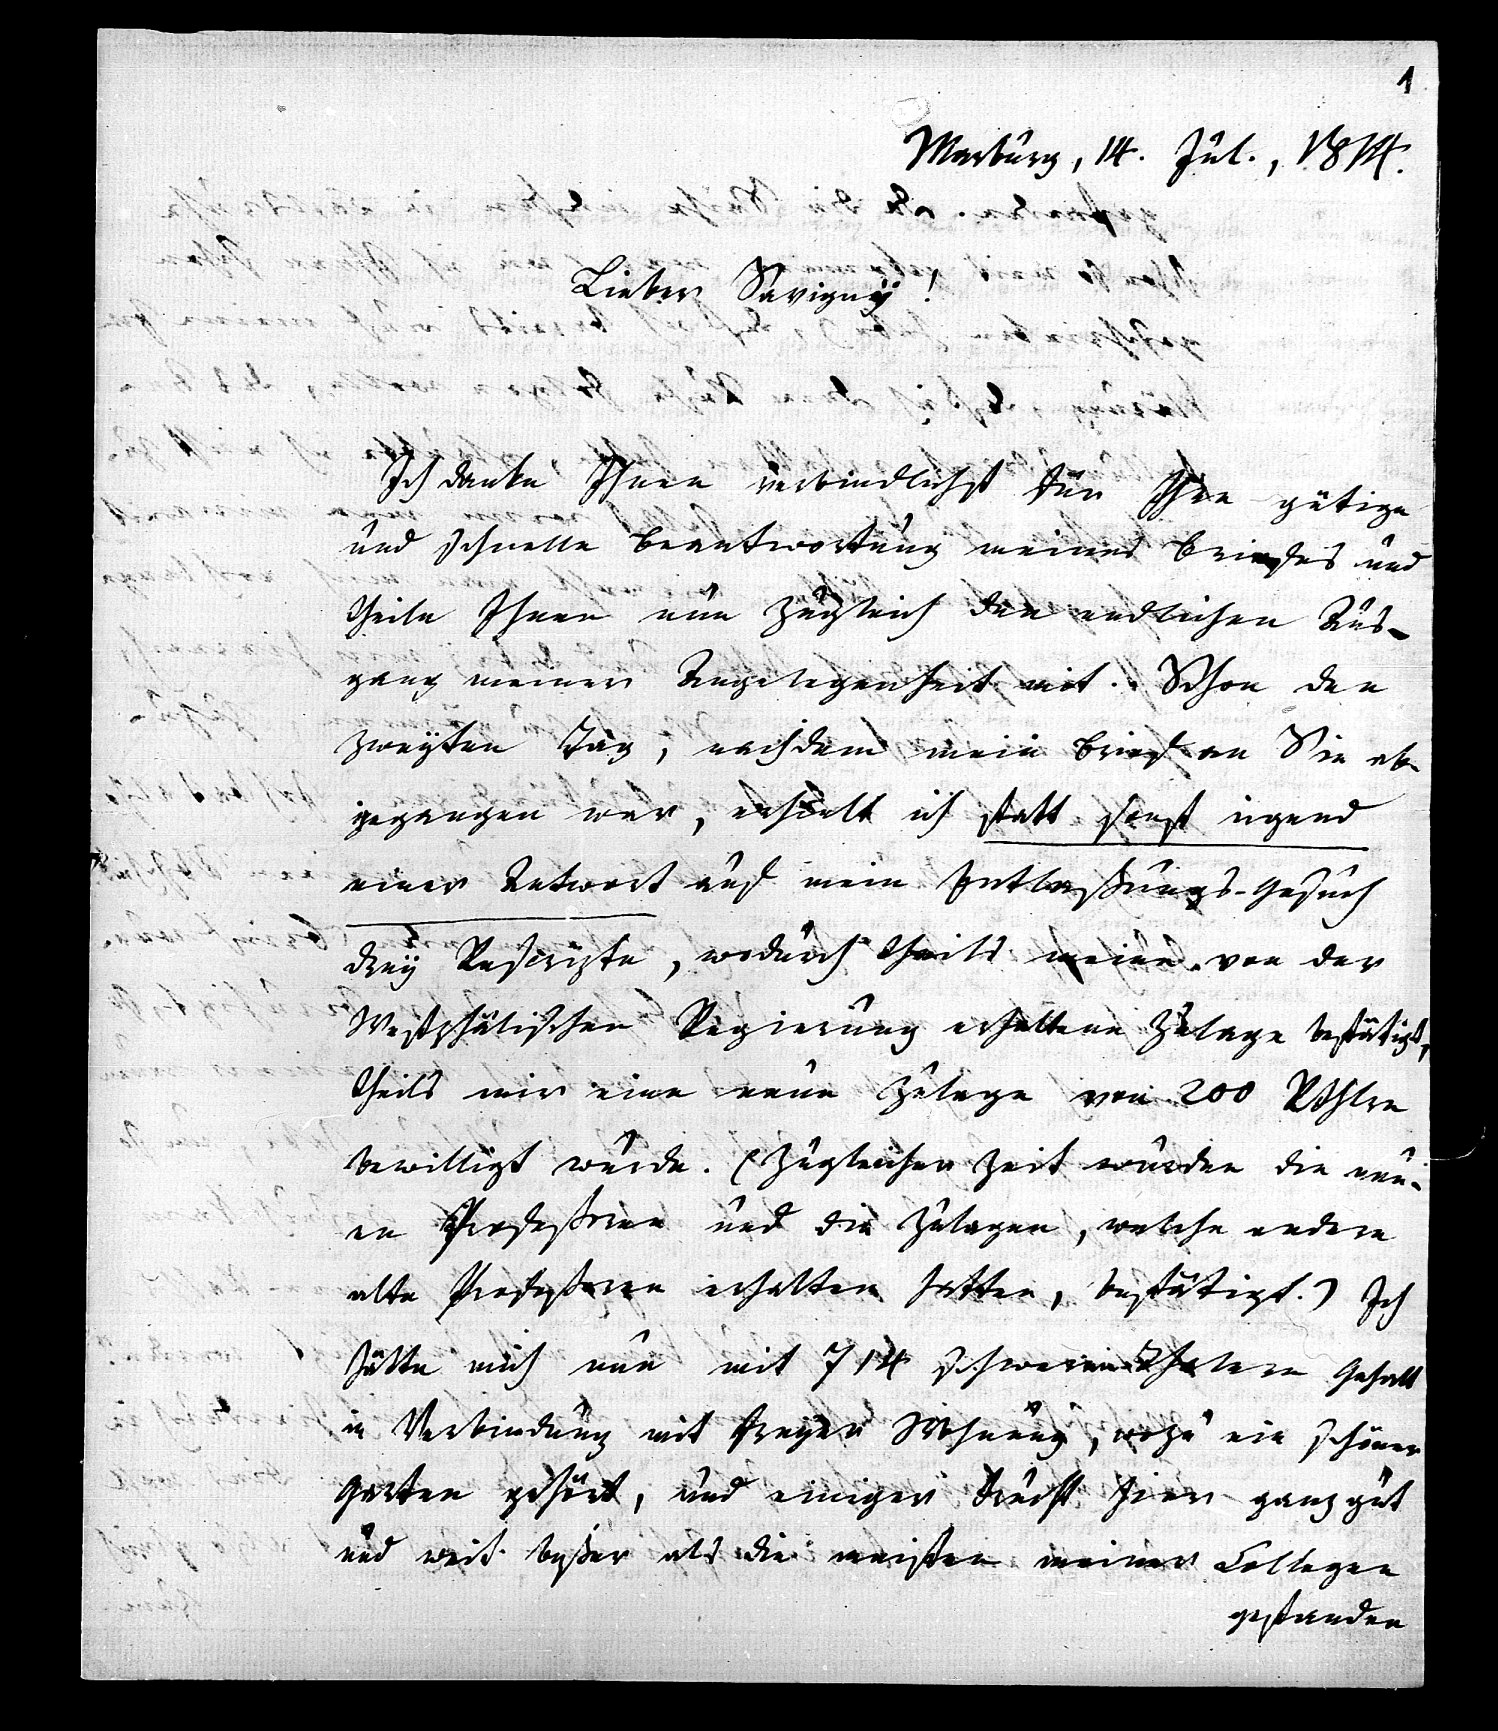 1
Marburg, 14. Jul., 1814.
Lieber Savigny!
Ich danke Ihnen verbindlichst für Ihre gütige
und schnelle Beantwortung meines Briefes und
theile Ihnen nun zugleich den endlichen Aus-
gang meiner Angelegenheit mit. Schon den
zweyten Tag, nachdem mein Brief an Sie ab-
gegangen war, erhielt ich statt sonst irgend
einer Antwort auf mein Entlaßungs-Gesuch
drey Rescripte, wodurch theils meine von der
Westphälischen Regierung erhaltene Zulage bestätigt,
theils mir eine neue Zulage von 200 Rthlrn
bewilligt wurde. (Zugleicher Zeit wurden die neu-
en Profeßoren und die Zulagen, welche andere
alte Profeßoren erhalten hatten, bestätigt.) Ich
hätte mich nun mit 714 schweren Thalern Gehalt
in Verbindung mit freyer Wohnung, wozu ein schöner
Garten gehört, und einiger Frucht hier ganz gut
und weit beßer als die meisten meiner Collegen
gestanden